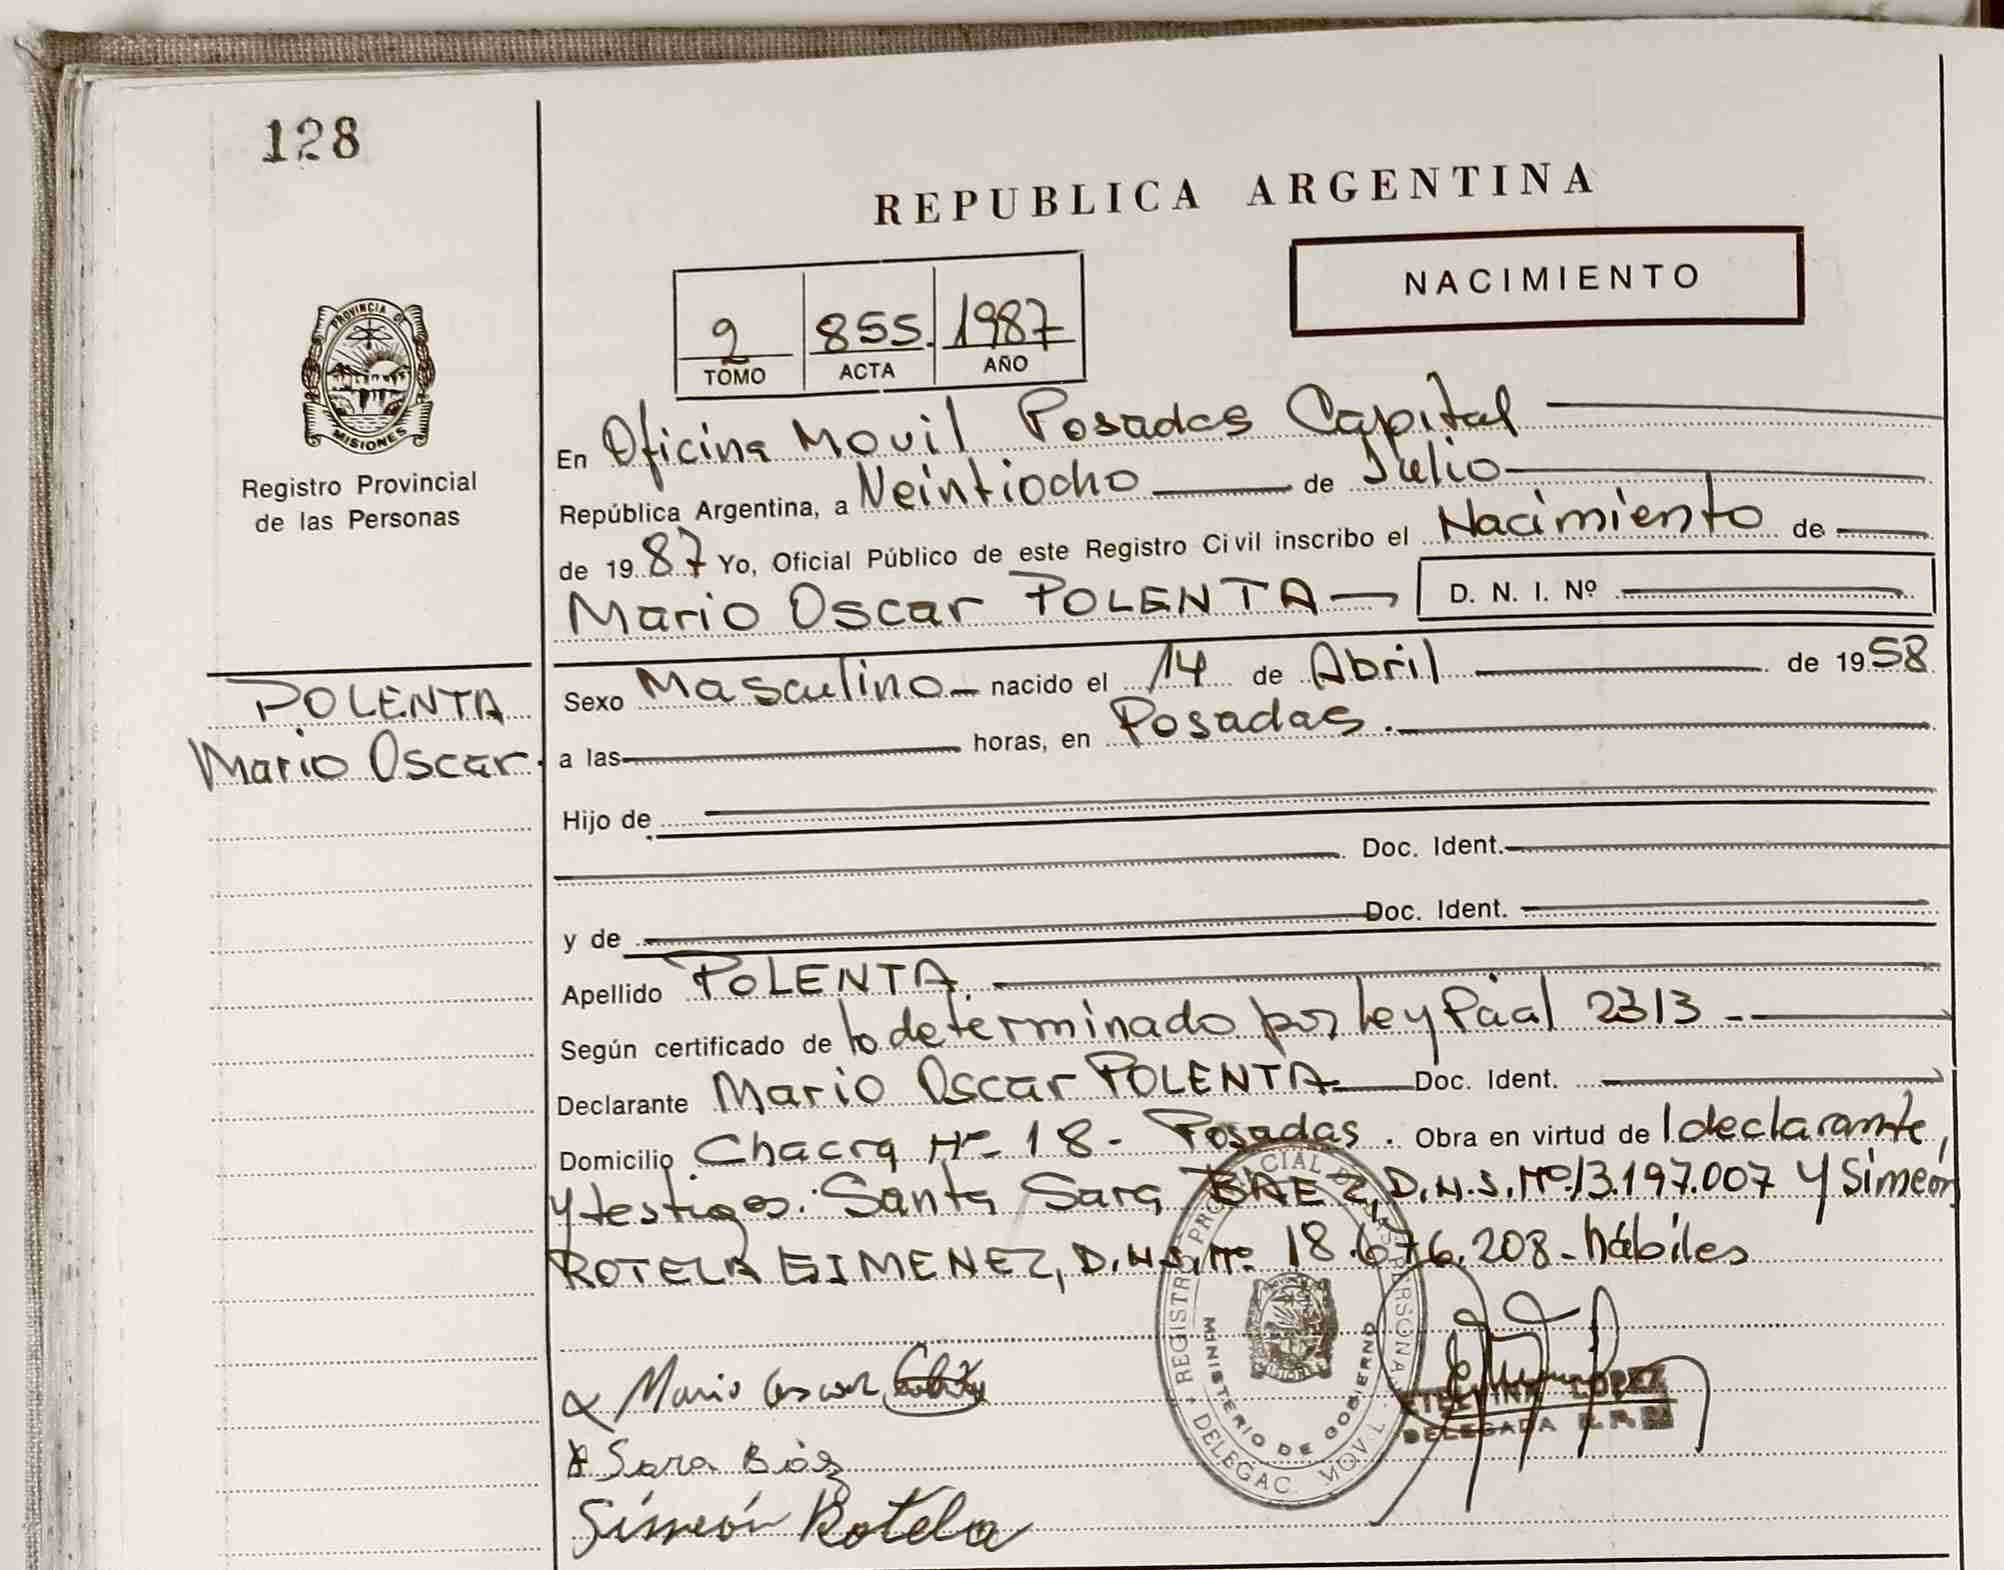 128
REPUBLICA ARGENTINA
NACIMIENTO
2 855. 1987
TOMO ACTA AÑO
PROVINCIA DE
MISIONES
Registro Provincial
de las Personas
En Oficina Movil Posadas Capital
República Argentina, a Veintiocho de Julio
de 1987 Yo, Oficial Público de este Registro Civil inscribo el Nacimiento de
Mario Oscar POLENTA D. N. I. Nº
POLENTA
Mario Oscar.
Sexo Masculino nacido el 14 de Abril de 1958
a las horas, en Posadas.
Hijo de
Doc. Ident.
y de Doc. Ident.
Apellido POLENTA.
Según certificado de lo determinado por Ley Pcial 2313
Declarante Mario Oscar POLENTA Doc. Ident.
Domicilio Chacra Nº 18 - Posadas. Obra en virtud de l declarante,
y testigos: Santa Sara BAEZ, D.N.I. Nº 13.197.007 y Simeón
ROTELA GIMENEZ, D.N.I. Nº 18.676.208 - hábiles
Mario Oscar
Sara Báez
Simeón Rotela
MINISTERIO DE GOBIERNO
LOPEZ
DELEGADA